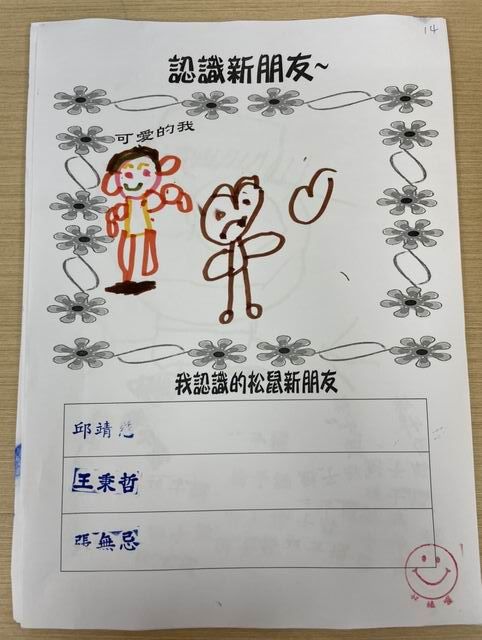 14
認識新朋友~
可愛的我
我認識的松鼠新朋友
邱靖
王秉哲
張無忌